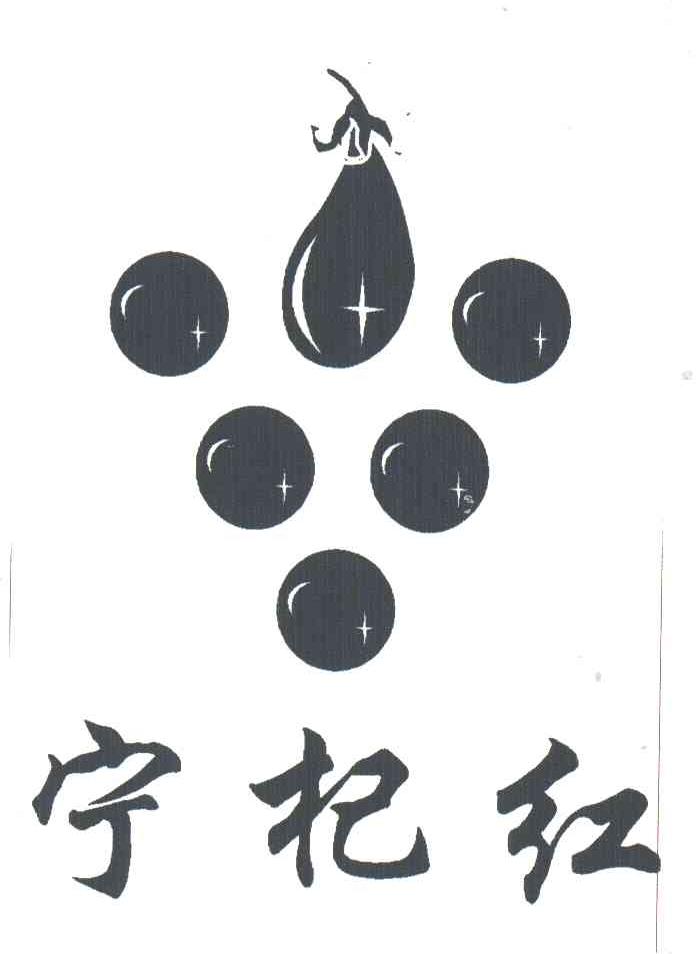 宁杞红